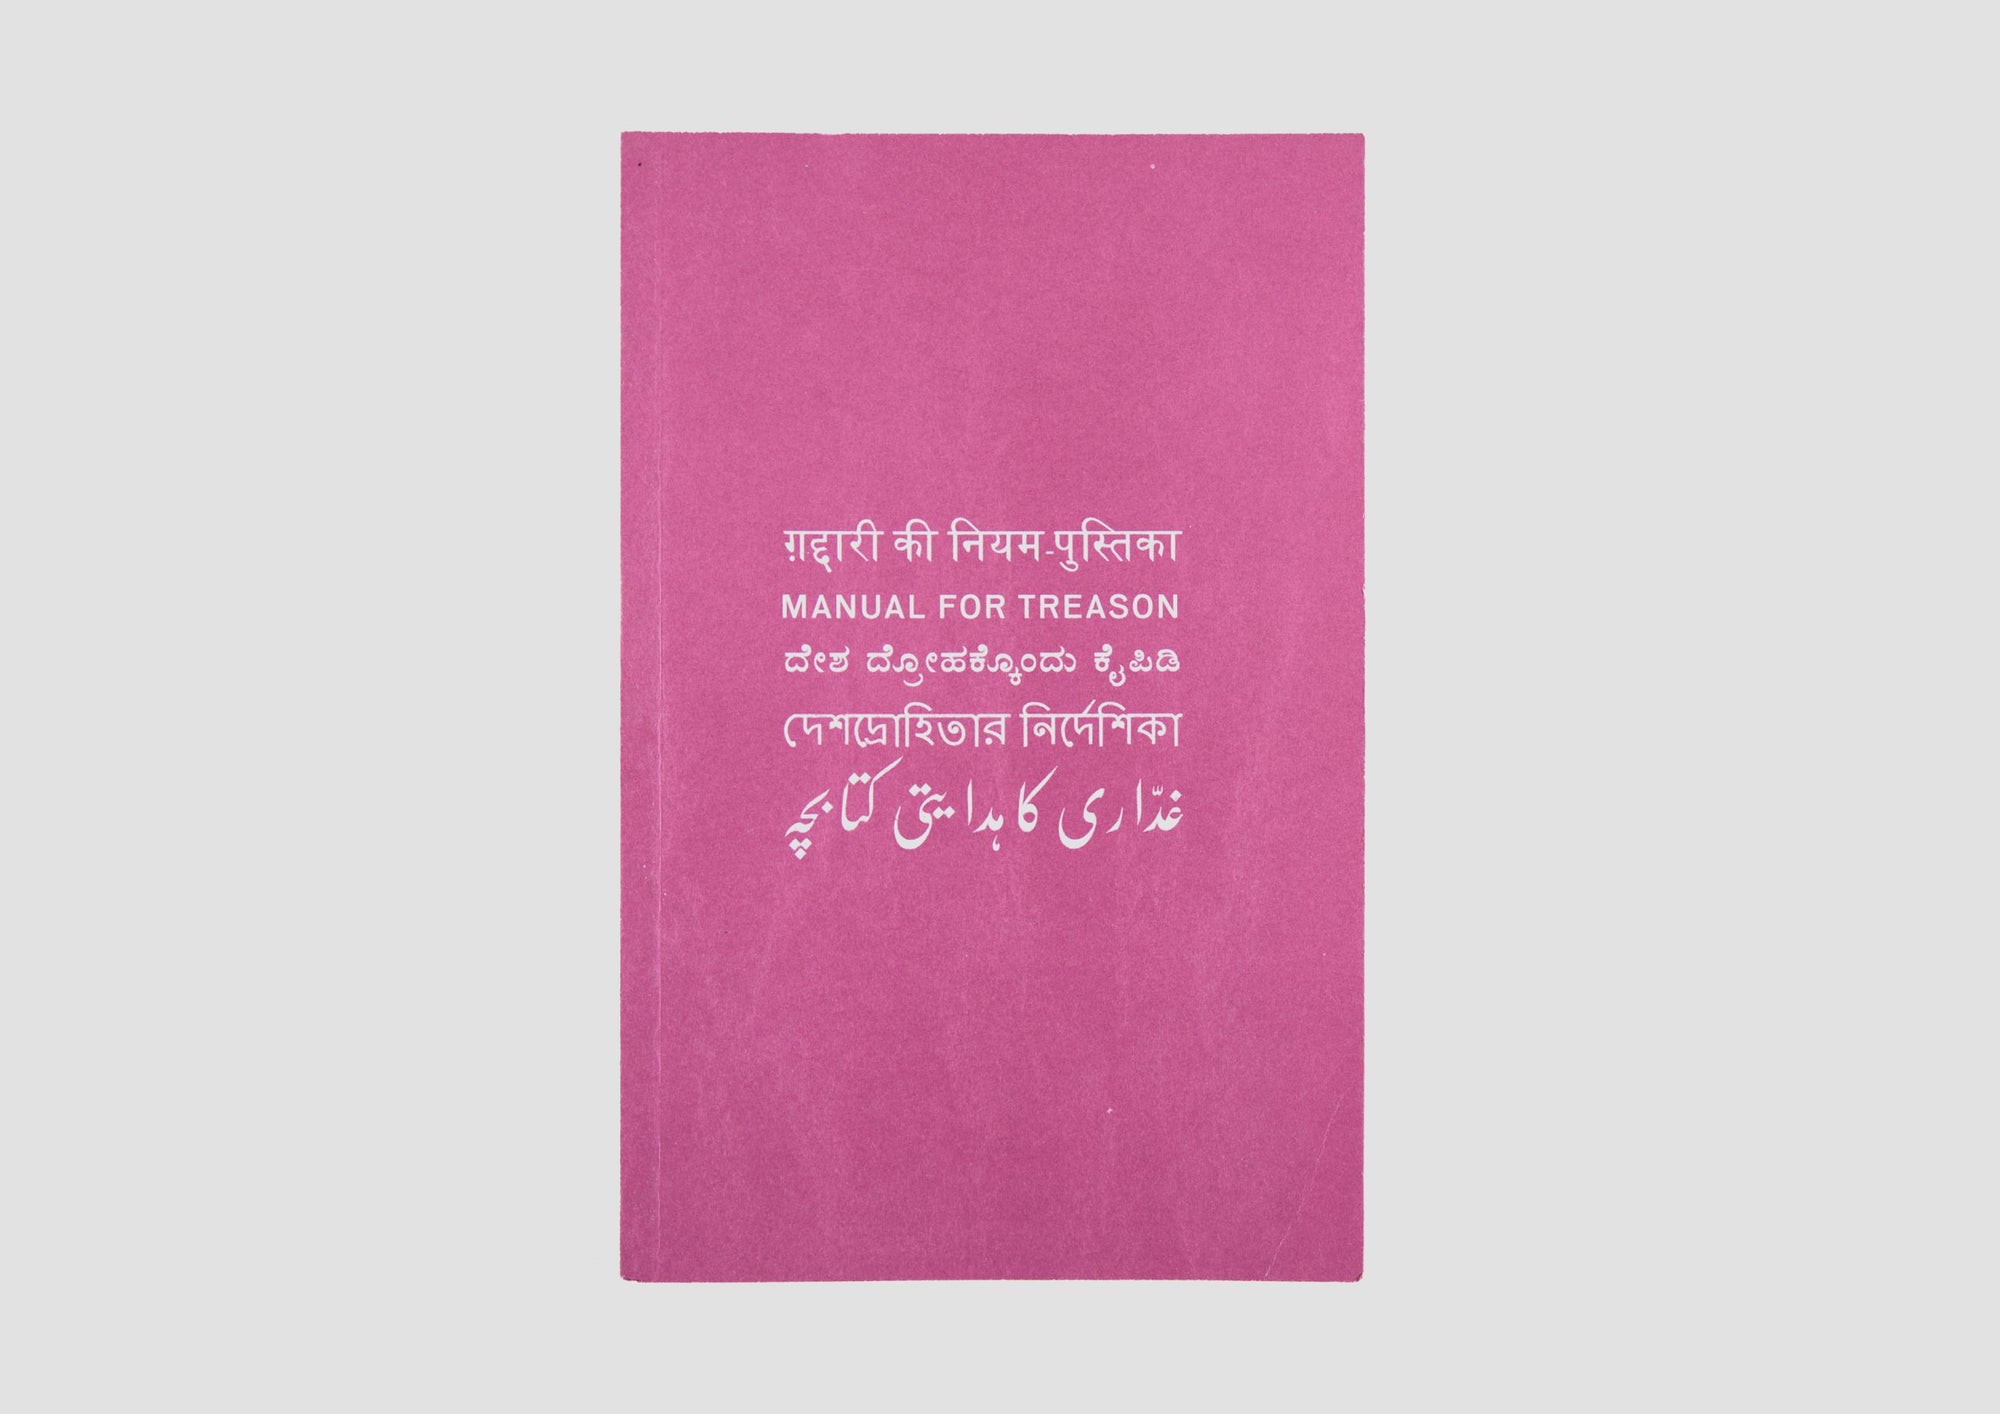 ग़द्दारी की नियम-पुस्तिका
MANUAL FOR TREASON
ದೇಶ ದ್ರೋಹಕ್ಕೊಂದು ಕೈಪಿಡಿ
দেশদ্রোহিতার নির্দেশিকা
غدّاری کا ہدایتی کتابچہ